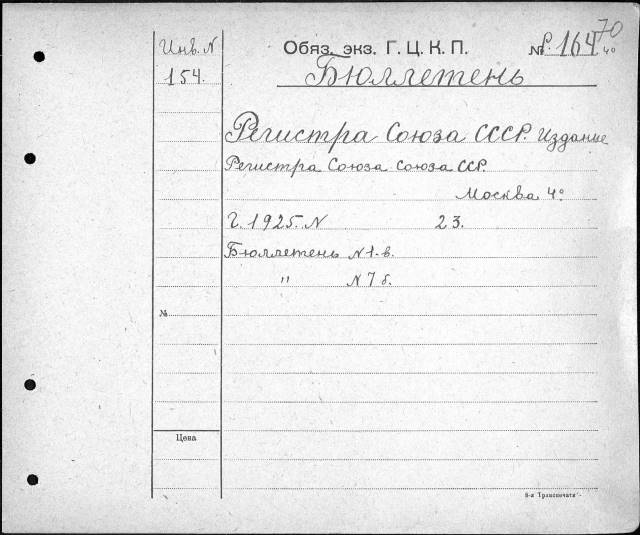 Инв. N
154.
Обяз. экз. Г. Ц. К. П.
№ 164 70
40
Бюллетень
Регистра Союза СССР. Издание
Регистра Союза Союза ССР.
Москва 4°
Г. 1925. N 23.
Бюллетень N 1-в.
" N 7 б.
№
Цена
6-я Транспечати